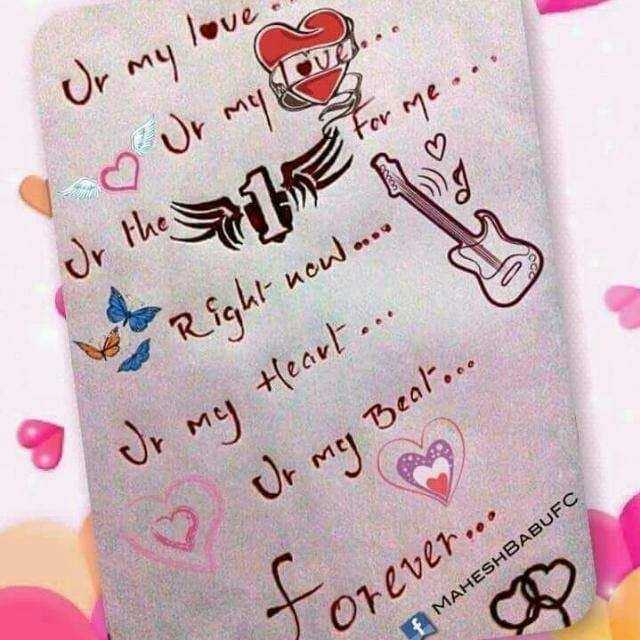 Ur my love...
Ur my Love...
Ur the 1 For me....
Right now....
Ur my Heart...
Ur my Beat...
forever...
f MAHESHBABUFC